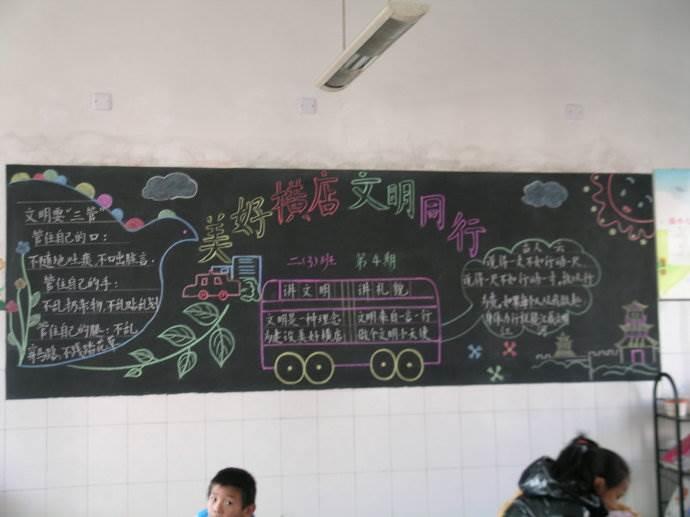 美好横店 文明同行
二(3)班 第4期
文明要"三管"
管住自己的口:
不随地吐痰,不口出脏言.
管住自己的手:
不乱扔杂物,不乱贴乱划
管住自己的腿:不乱
不践踏花草
讲文明 讲礼貌
文明是一种理念 文明来自一言一行
为建设美好横店 做个文明小天使
古人云
说得一尺不如行得一寸